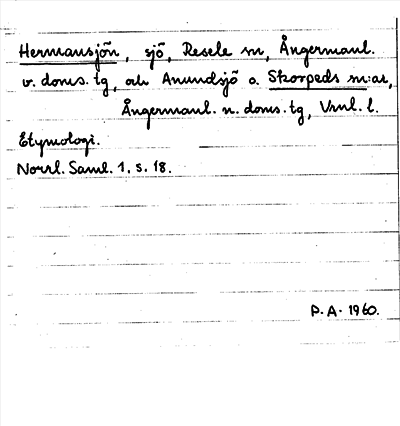 Hermansjön, sjö, Resele sn, Ångermanl.
v. doms. tg, och Anundsjö o. Skorpeds sn:ar,
Ångermanl. n. doms. tg, Vnl. l.
Etymologi.
Norrl. Saml. 1, s. 18.
P.A. 1960.